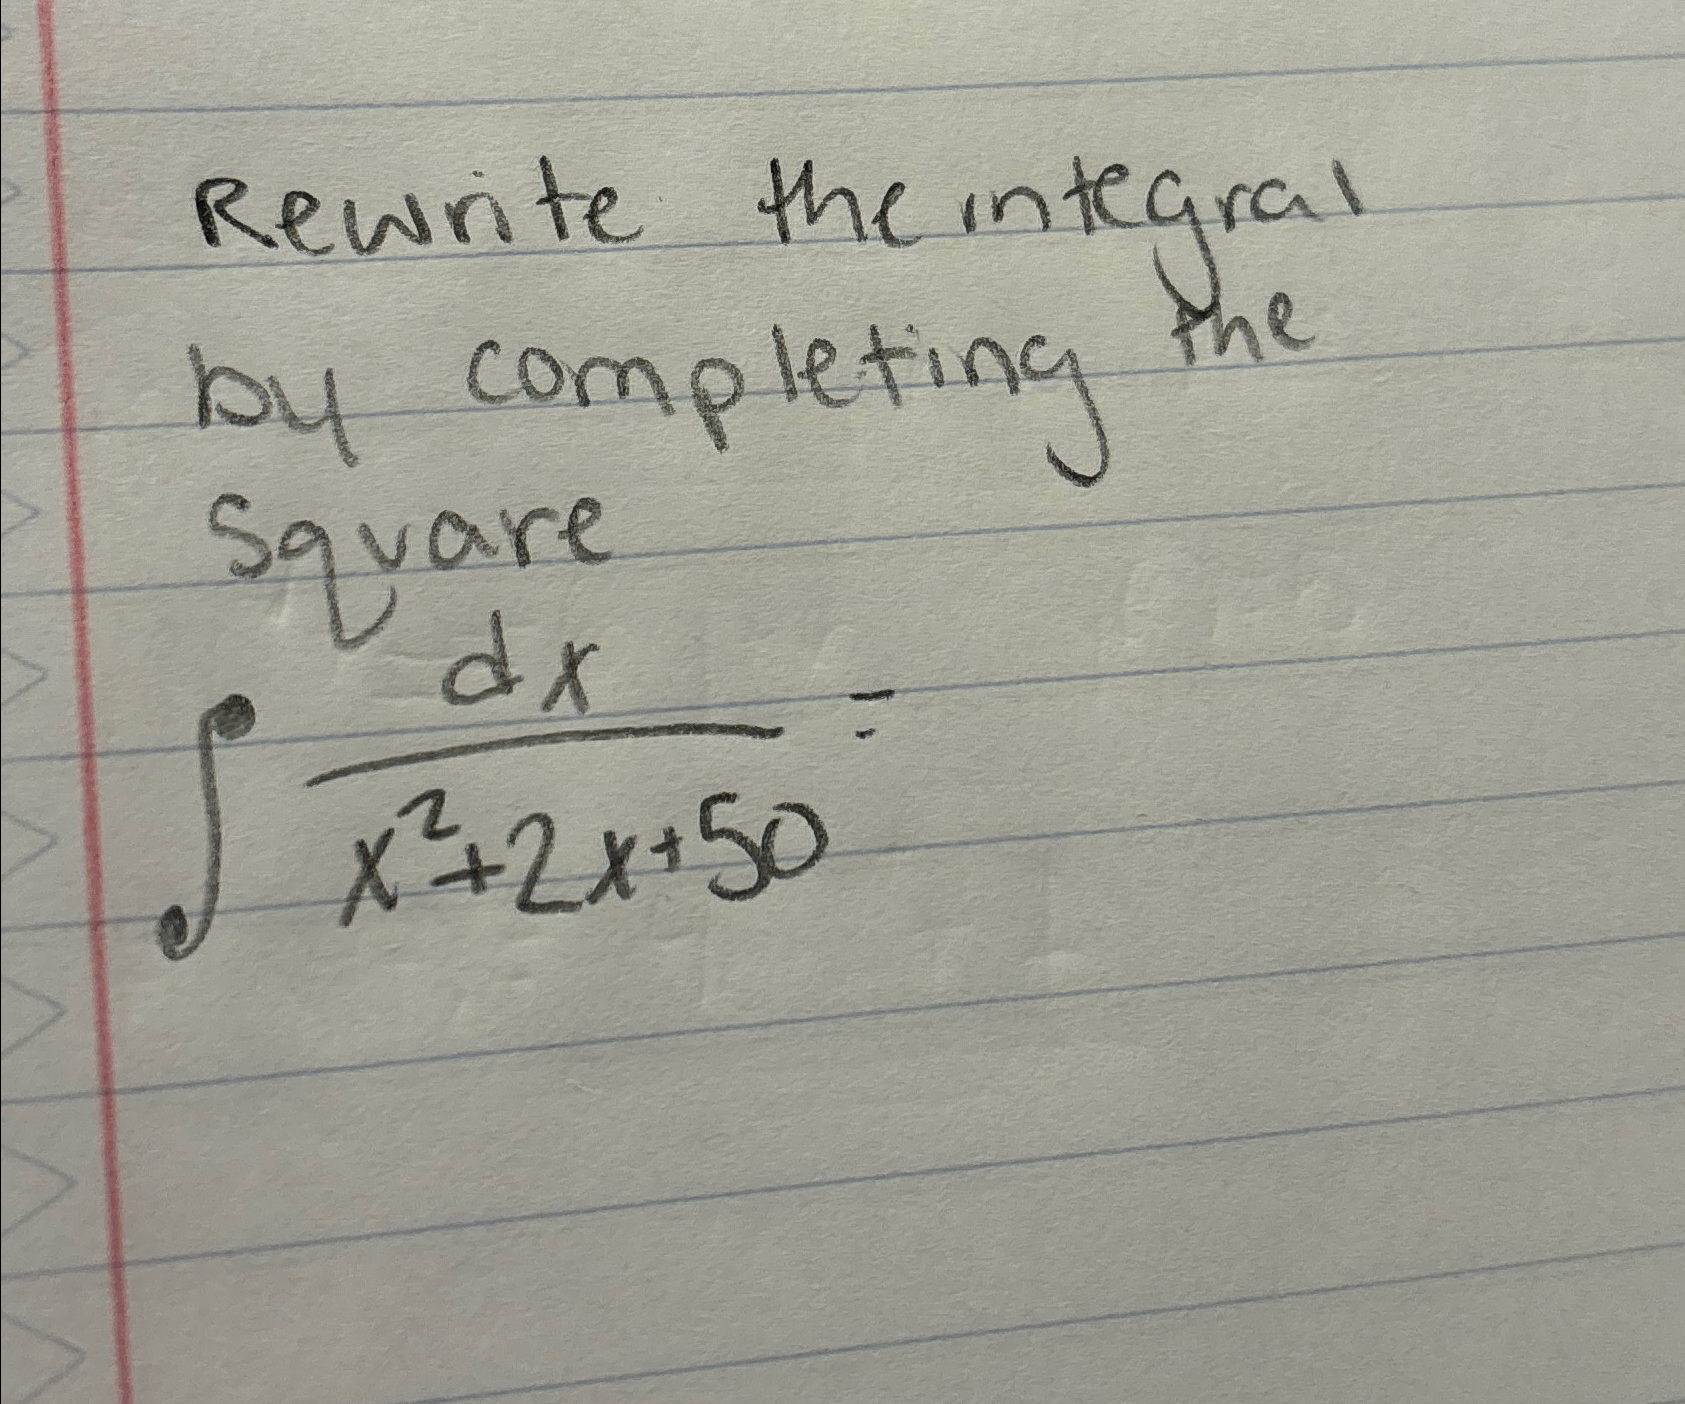 Rewrite the integral
by completing the
square
∫ dx / x²+2x+50 =